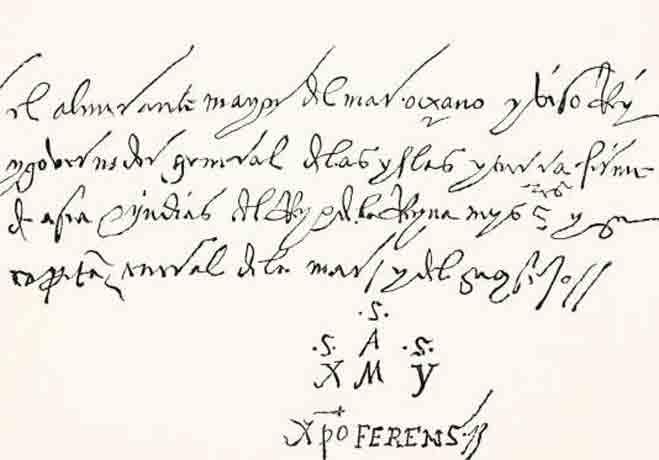 el almirante mayor del mar oçeano y visorey
y governador general de las yslas y tierra firme
de asia e yndias del Rey e de la Reyna mys s.res y su
capitan general de la mar y del
.S.
.S. A .S.
X M Y
Xpo FERENS